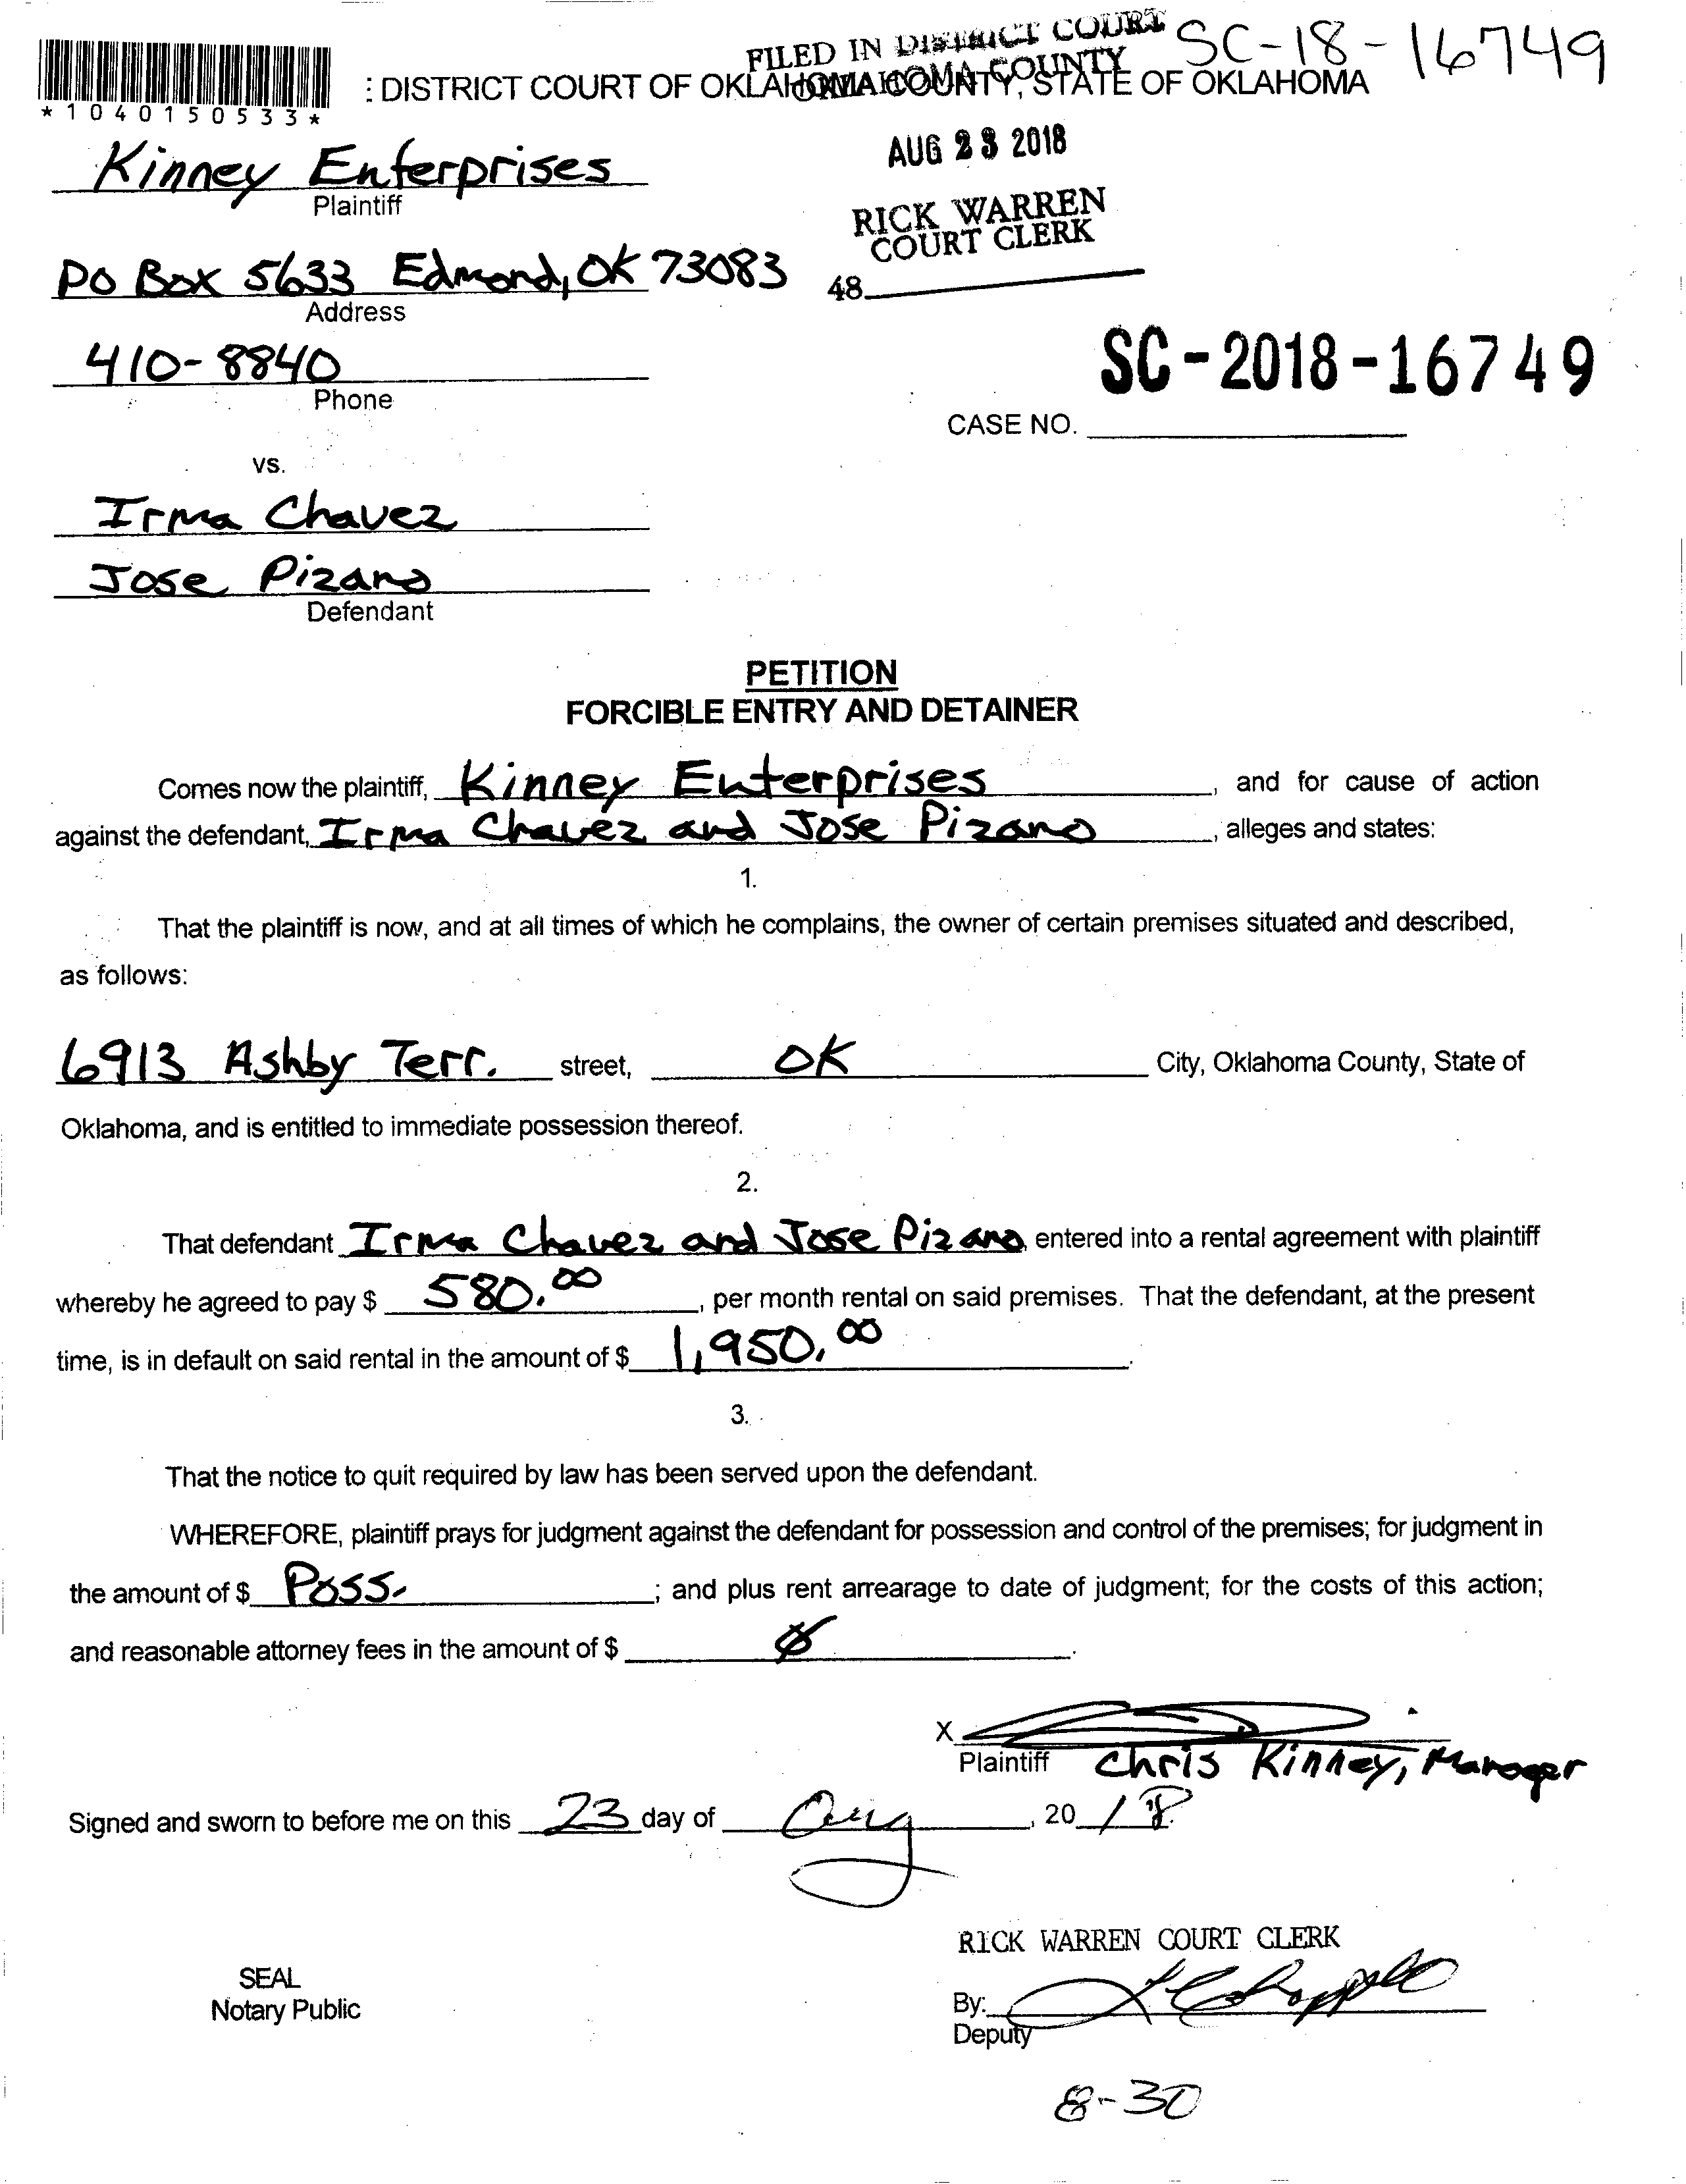 FILED IN DISTRICT COURT
OKLAHOMA COUNTY
SC-18-16749
: DISTRICT COURT OF OKLAHOMA COUNTY, STATE OF OKLAHOMA
*1040150533*
AUG 23 2018
Kinney Enterprises
Plaintiff
RICK WARREN
COURT CLERK
PO Box 5633 Edmond, OK 73083
48
Address
410-8840
Phone
SC-2018-16749
CASE NO.
vs.
Irma Chavez
Jose Pizano
Defendant
PETITION
FORCIBLE ENTRY AND DETAINER
Comes now the plaintiff, Kinney Enterprises, and for cause of action
against the defendant, Irma Chavez and Jose Pizano, alleges and states:
1.
That the plaintiff is now, and at all times of which he complains, the owner of certain premises situated and described,
as follows:
6913 Ashby Terr. street, OK City, Oklahoma County, State of
Oklahoma, and is entitled to immediate possession thereof.
2.
That defendant Irma Chavez and Jose Pizano entered into a rental agreement with plaintiff
whereby he agreed to pay $ 580.00, per month rental on said premises. That the defendant, at the present
time, is in default on said rental in the amount of $ 1,950.00.
3.
That the notice to quit required by law has been served upon the defendant.
WHEREFORE, plaintiff prays for judgment against the defendant for possession and control of the premises; for judgment in
the amount of $ Poss. ; and plus rent arrearage to date of judgment; for the costs of this action;
and reasonable attorney fees in the amount of $ .
X
Plaintiff Chris Kinney, Manager
Signed and sworn to before me on this 23 day of Aug, 2018.
RICK WARREN COURT CLERK
SEAL
Notary Public
By:
Deputy
8-30